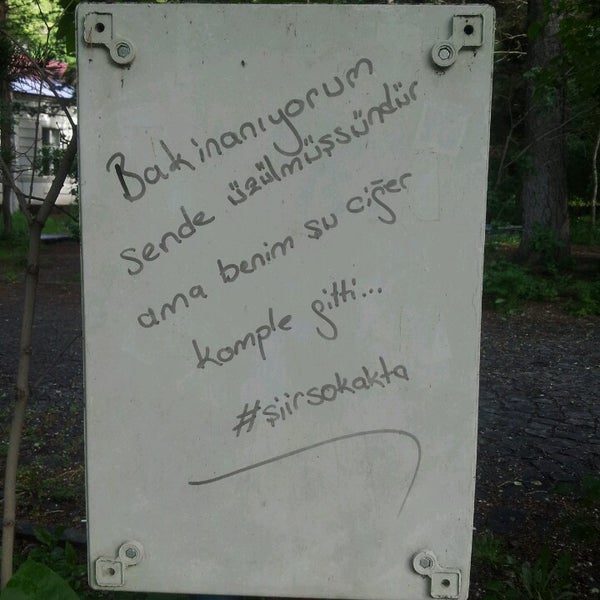 Bak inanıyorum
sende üzülmüşsündür
ama benim şu ciğer
komple gitti...
#şiirsokakta